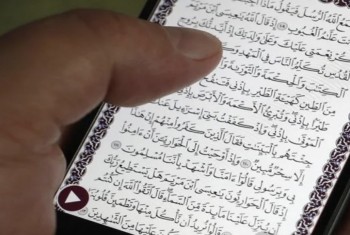 ٱللَّهُ ٱلرُّسُلَ فَيَقُولُ مَاذَآ
أَنتَ عَلَّٰمُ ٱلْغُيُوبِ ۝١٠٩ إِذْ قَالَ ٱللَّهُ يَٰعِيسَى ٱبْنَ مَرْيَمَ
نِعْمَتِى عَلَيْكَ وَعَلَىٰ وَٰلِدَتِكَ إِذْ أَيَّدتُّكَ بِرُوحِ
ٱلْقُدُسِ تُكَلِّمُ ٱلنَّاسَ فِى ٱلْمَهْدِ
ٱلْكِتَٰبَ وَٱلْحِكْمَةَ وَٱلتَّوْرَىٰةَ
مِنَ ٱلطِّينِ كَهَيْـَٔةِ ٱلطَّيْرِ بِإِذْنِى فَتَنفُخُ
طَيْرًۢا بِإِذْنِى وَتُبْرِئُ ٱلْأَكْمَهَ وَٱلْأَبْرَصَ بِإِذْنِى
ٱلْمَوْتَىٰ بِإِذْنِى وَإِذْ كَفَفْتُ بَنِىٓ إِسْرَٰٓءِيلَ
جِئْتَهُم بِٱلْبَيِّنَٰتِ فَقَالَ ٱلَّذِينَ كَفَرُوا۟ مِنْهُمْ إِنْ هَٰذَآ
إِلَّا سِحْرٌ مُّبِينٌ ۝١١٠ وَإِذْ أَوْحَيْتُ إِلَى ٱلْحَوَارِيِّـۧنَ أَنْ ءَامِنُوا۟
بِى وَبِرَسُولِى قَالُوٓا۟ ءَامَنَّا وَٱشْهَدْ بِأَنَّنَا مُسْلِمُونَ ۝١١١
إِذْ قَالَ ٱلْحَوَارِيُّونَ يَٰعِيسَى ٱبْنَ مَرْيَمَ هَلْ يَسْتَطِيعُ رَبُّكَ
أَن يُنَزِّلَ عَلَيْنَا مَآئِدَةً مِّنَ ٱلسَّمَآءِ قَالَ ٱتَّقُوا۟ ٱللَّهَ إِن كُنتُم
قَالُوا۟ نُرِيدُ أَن نَّأْكُلَ مِنْهَا وَتَطْمَئِنَّ قُلُوبُنَا
وَنَكُونَ عَلَيْهَا مِنَ ٱلشَّٰهِدِينَ